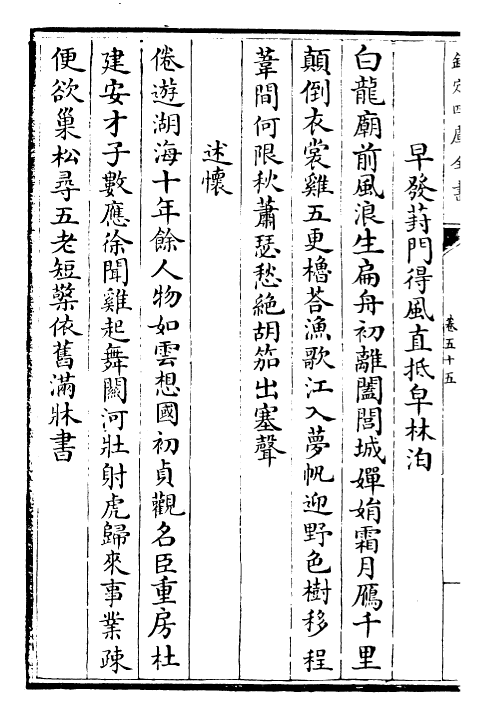 欽定四庫全書
卷五十五
早發葑門得風直抵皁林泊
白龍廟前風浪生扁舟初離闔閭城嬋娟霜月鴈千里
顛倒衣裳雞五更櫓荅漁歌江入夢帆迎野色樹移程
葦間何限秋蕭瑟愁絶胡笳出塞聲
述懷
倦遊湖海十年餘人物如雲想國初貞觀名臣重房杜
建安才子數應徐聞雞起舞關河壯射虎歸來事業疎
便欲巢松尋五老短檠依舊滿牀書